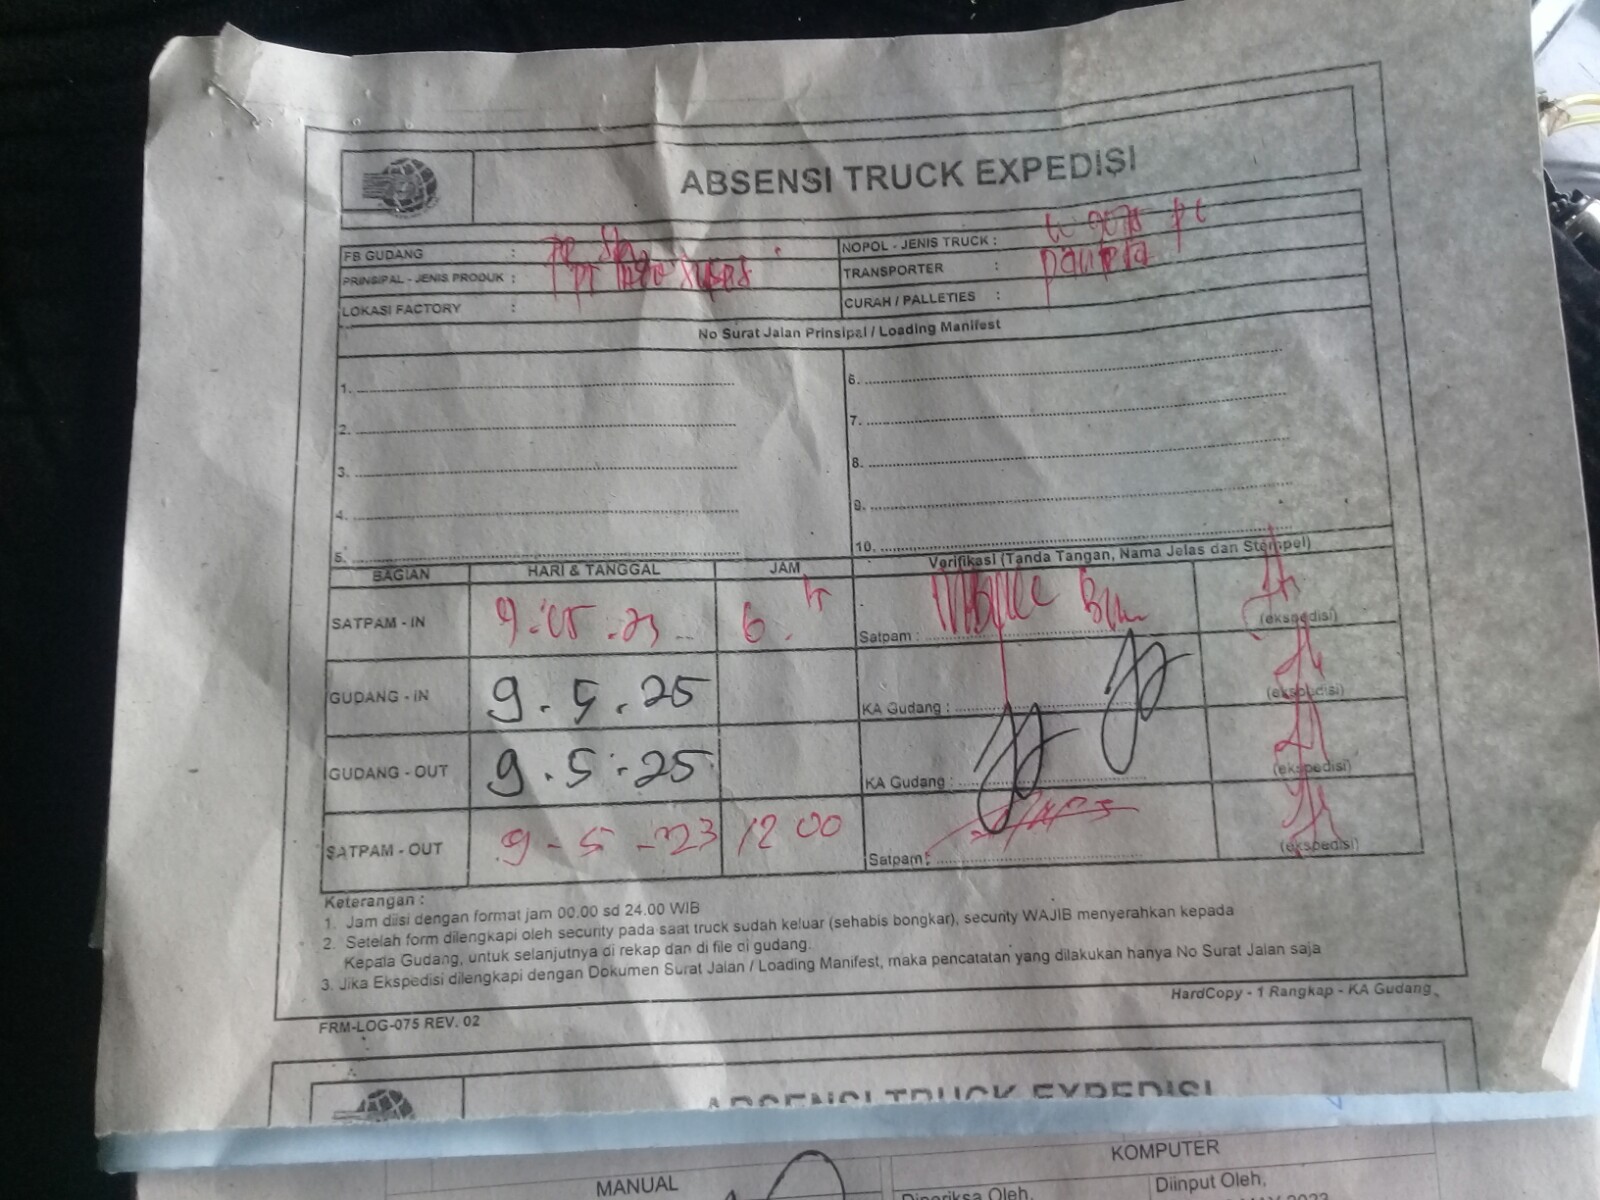 ABSENSI TRUCK EXPEDISI
FB GUDANG :
NOPOL - JENIS TRUCK :
PRINSIPAL - JENIS PRODUK : PT
TRANSPORTER :
LOKASI FACTORY :
CURAH / PALLETIES :
No Surat Jalan Prinsipal / Loading Manifest
1.
2.
3.
4.
5.
6.
7.
8.
9.
10.
BAGIAN HARI & TANGGAL JAM Verifikasi (Tanda Tangan, Nama Jelas dan Stempel)
SATPAM - IN 9-05-23 6. Satpam : (ekspedisi)
GUDANG - IN 9.5.25 KA Gudang : (ekspedisi)
GUDANG - OUT 9.5.25 KA Gudang : (ekspedisi)
SATPAM - OUT 9-5-23 12 00 Satpam : (ekspedisi)
Keterangan :
1. Jam diisi dengan format jam 00.00 sd 24.00 WIB
2. Setelah form dilengkapi oleh security pada saat truck sudah keluar (sehabis bongkar), security WAJIB menyerahkan kepada
Kepala Gudang, untuk selanjutnya di rekap dan di file di gudang.
3. Jika Ekspedisi dilengkapi dengan Dokumen Surat Jalan / Loading Manifest, maka pencatatan yang dilakukan hanya No Surat Jalan saja
HardCopy - 1 Rangkap - KA Gudang
FRM-LOG-075 REV. 02
ABSENSI TRUCK EXPEDISI
KOMPUTER
MANUAL
Diperiksa Oleh,
Diinput Oleh,